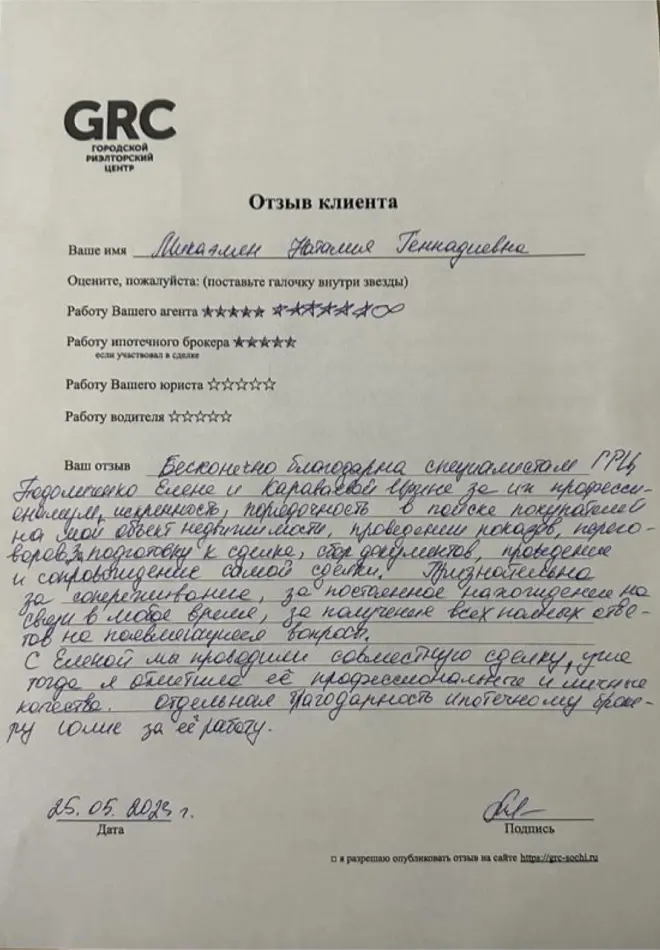 GRC
ГОРОДСКОЙ
РИЭЛТОРСКИЙ
ЦЕНТР
Отзыв клиента
Ваше имя Микаэлян Наталия Геннадиевна
Оцените, пожалуйста: (поставьте галочку внутри звезды)
Работу Вашего агента ★★★★★ ★★★★★★∞
Работу ипотечного брокера ★★★★★
если участвовал в сделке
Работу Вашего юриста ☆☆☆☆☆
Работу водителя ☆☆☆☆☆
Ваш отзыв Бесконечно благодарна специалистам ГРЦ
Елене и Караваевой Ирине за их професси-
онализм, искренность, порядочность в поиске покупателей
на мой объект недвижимости, проведении показов, перего-
воров, за подготовку к сделке, сбор документов, проведение
и сопровождение самой сделки. Признательна
за сопереживание, за постоянное нахождение на
связи в любое время, за получение всех полных отве-
тов на появляющиеся вопросы.
С Еленой мы проводили совместную сделку, уже
тогда я отметила её профессиональные и личные
качества. Отдельная благодарность ипотечному броке-
ру Юлие за её работу.
25.05.2023 г.
Дата
Подпись
□ я разрешаю опубликовать отзыв на сайте https://grc-sochi.ru